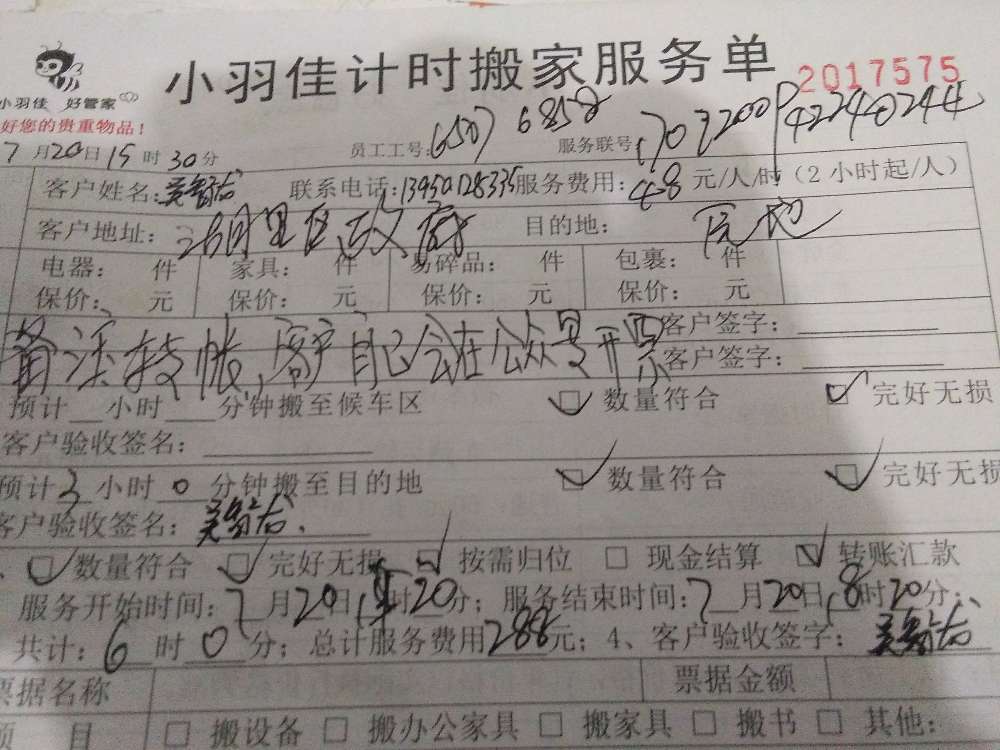 小羽佳计时搬家服务单
2017575
小羽佳 好管家
好您的贵重物品!
7月20日15时30分 员工工号:6507 6858 服务联号:
客户姓名: 联系电话:13950128335 服务费用:48元/人/时(2小时起/人)
客户地址:湖里区政府 目的地:原地
电器: 件 家具: 件 易碎品: 件 包裹: 件
保价: 元 保价: 元 保价: 元 保价: 元
客户签字:
备注转帐,客户自己会在公众号开票
客户签字:
预计 小时 分钟搬至候车区 数量符合 完好无损
客户验收签名:
预计3小时0分钟搬至目的地 数量符合 完好无损
客户验收签名:
数量符合 完好无损 按需归位 现金结算 转账汇款
服务开始时间:7月20日15时20分; 服务结束时间:7月20日18时20分;
共计:6时0分; 总计服务费用288元; 4、客户验收签字:
票据名称 票据金额
项目 搬设备 搬办公家具 搬家具 搬书 其他: